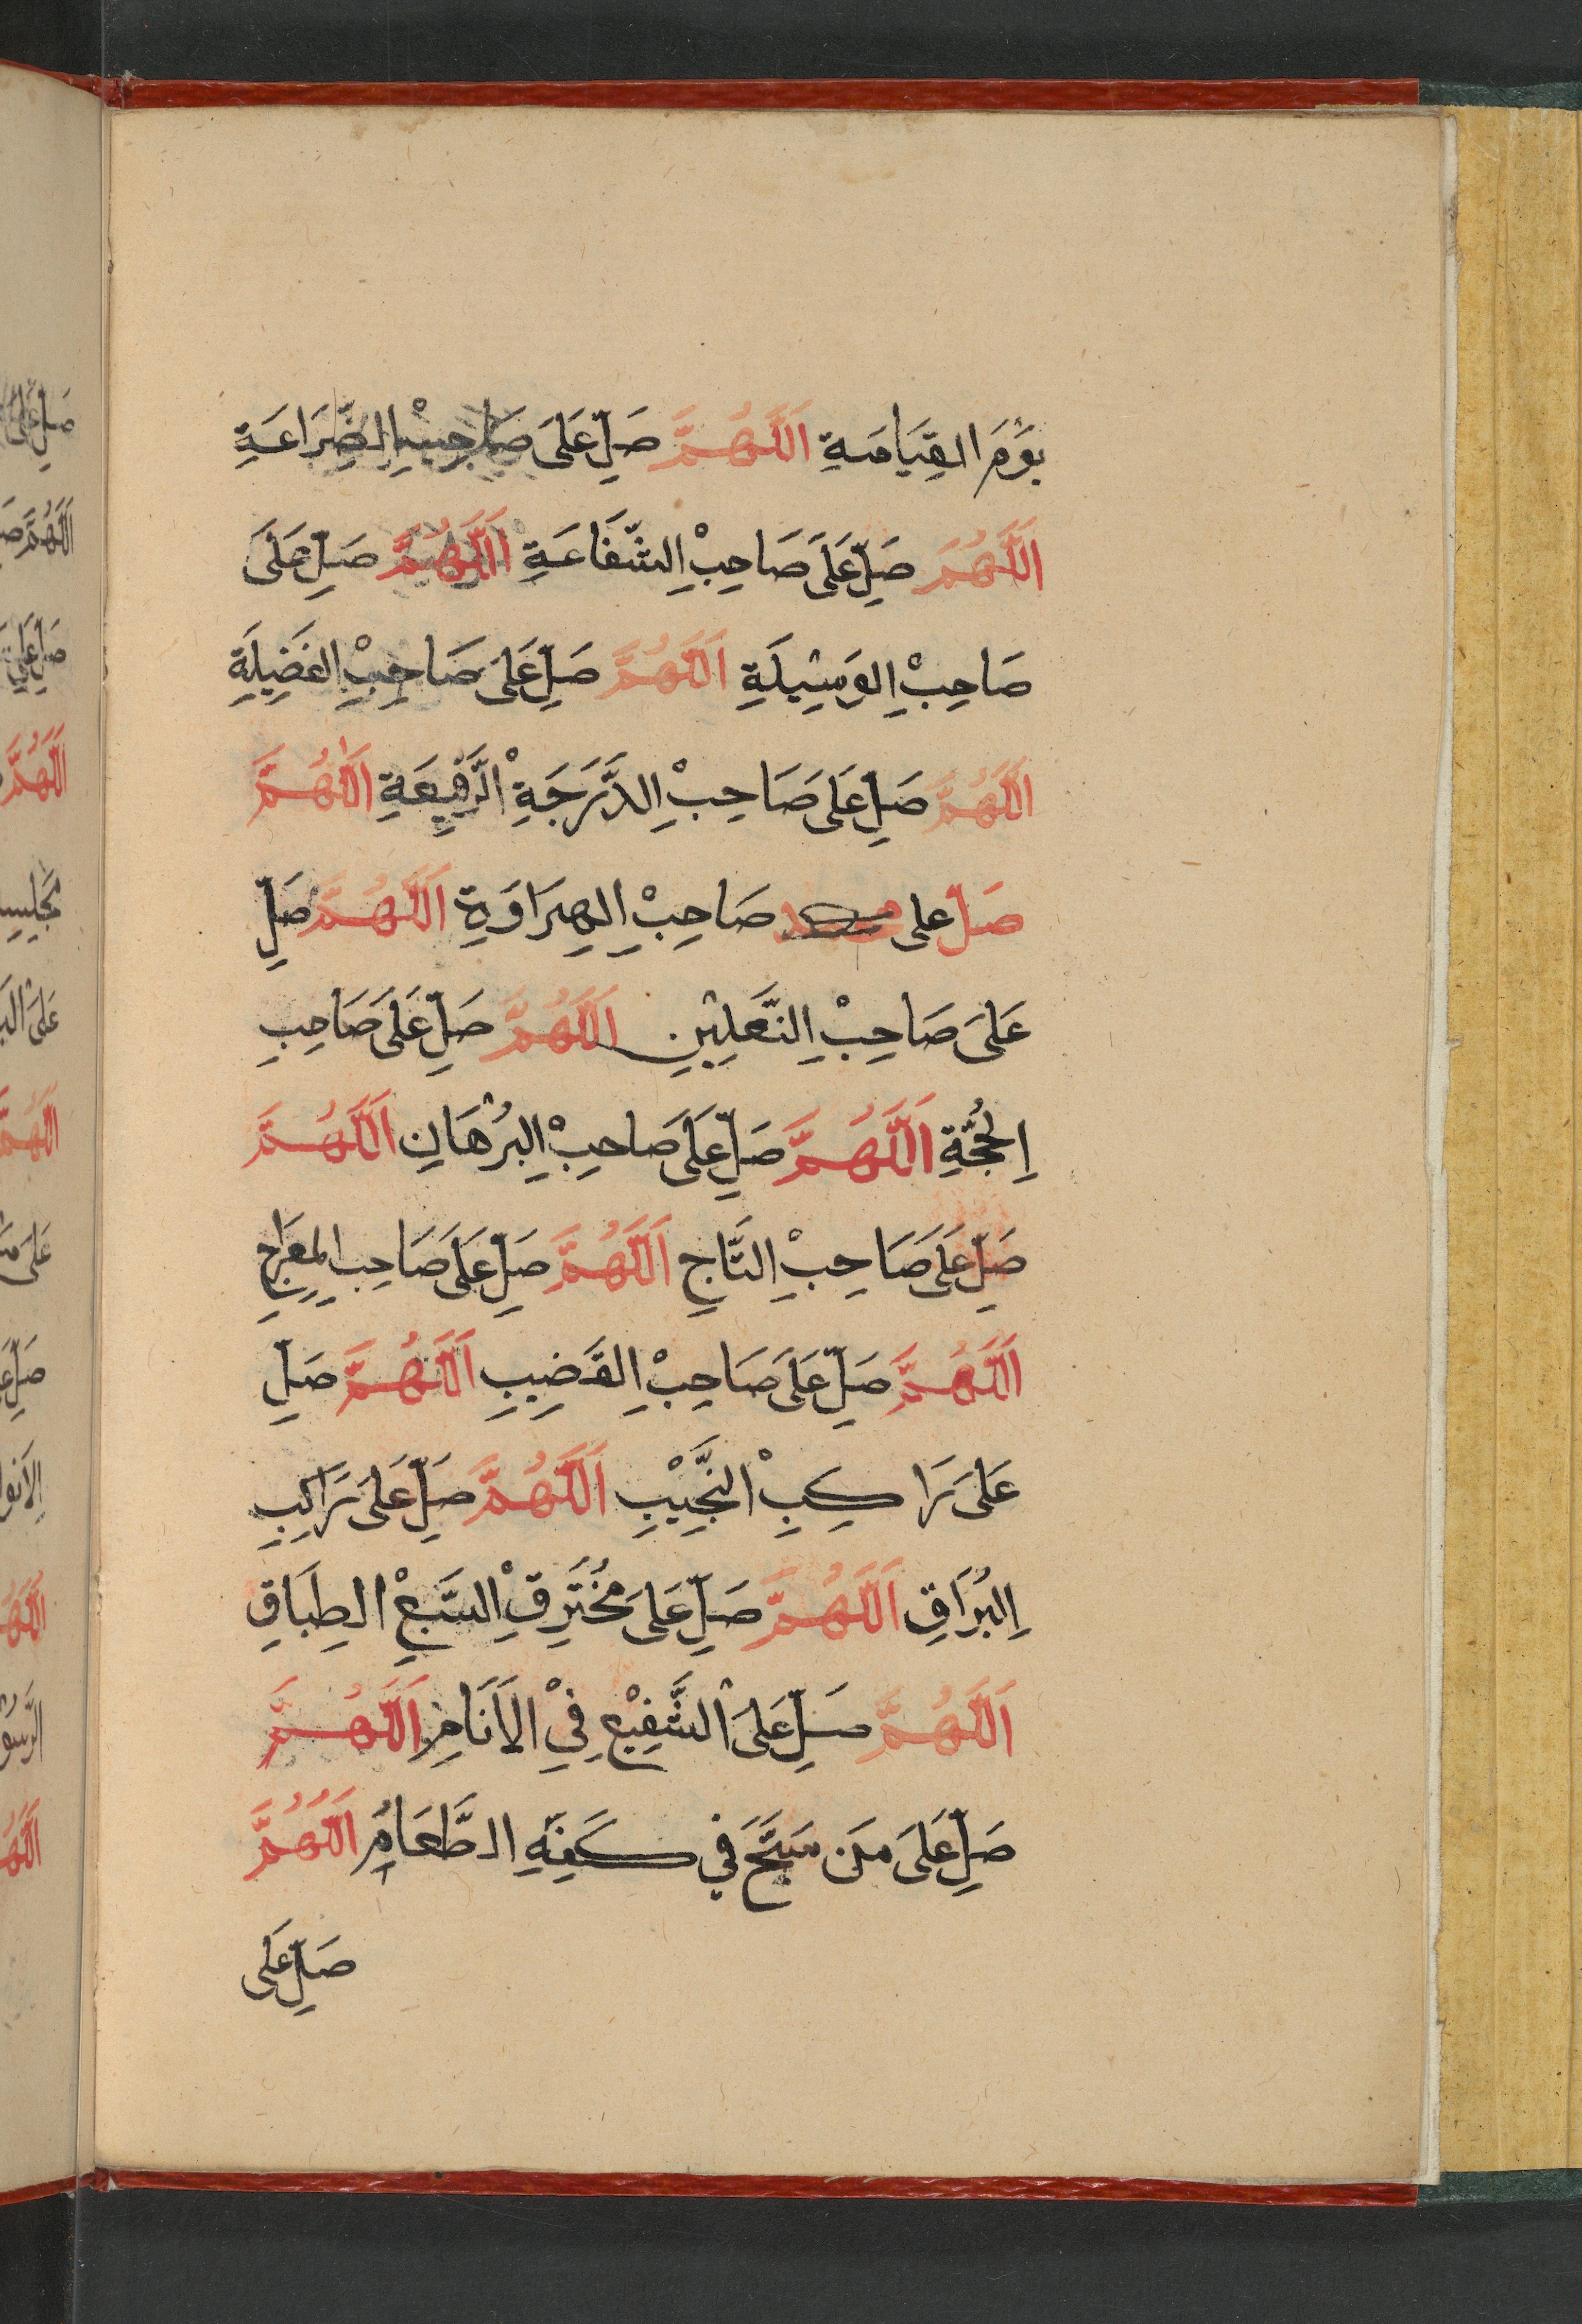 يَوْمَ القِيَامَةِ اَللَّهُمَّ صَلِّ عَلَى صَاحِبْ الضَّرَاعَةِ
اَللَّهُمَّ صَلِّ عَلَى صَاحِبْ الشَّفَاعَةِ اَللَّهُمَّ صَلِّ عَلَى
صَاحِبْ الوَسِيلَةِ اَللَّهُمَّ صَلِّ عَلَى صَاحِبْ الفَضِيلَةِ
اَللَّهُمَّ صَلِّ عَلَى صَاحِبْ الدَّرَجَةِ الرَّفِيعَةِ اَللَّهُمَّ
صَلِّ على صَاحِبْ الهِرَاوَةِ اَللَّهُمَّ صَلِّ
عَلَى صَاحِبْ النَّعْلَيْنِ اَللَّهُمَّ صَلِّ عَلَى صَاحِبِ
الحُجَّةِ اَللَّهُمَّ صَلِّ عَلَى صَاحِبْ البُرْهَانِ اَللَّهُمَّ
صَلِّ عَلَى صَاحِبْ التَّاجِ اَللَّهُمَّ صَلِّ عَلَى صَاحِبِ المِعرَاجِ
اَللَّهُمَّ صَلِّ عَلَى صَاحِبْ القَضِيبِ اَللَّهُمَّ صَلِّ
عَلَى رَاكِبِ النَّجِيْبِ اَللَّهُمَّ صَلِّ عَلَى رَاكِبِ
البُرَاقِ اَللَّهُمَّ صَلِّ عَلَى مُخْتَرِقِ السَّبْعِ الطِبَاقِ
اَللَّهُمَّ صَلِّ عَلَى الشَّفِيْعِ فِيْ الاَنَامِ اَللَّهُمَّ
صَلِّ عَلَى مَن سَبَّحَ في كَفِّهِ الطَّعَامُ اَللَّهُمَّ
صَلِّ عَلَى